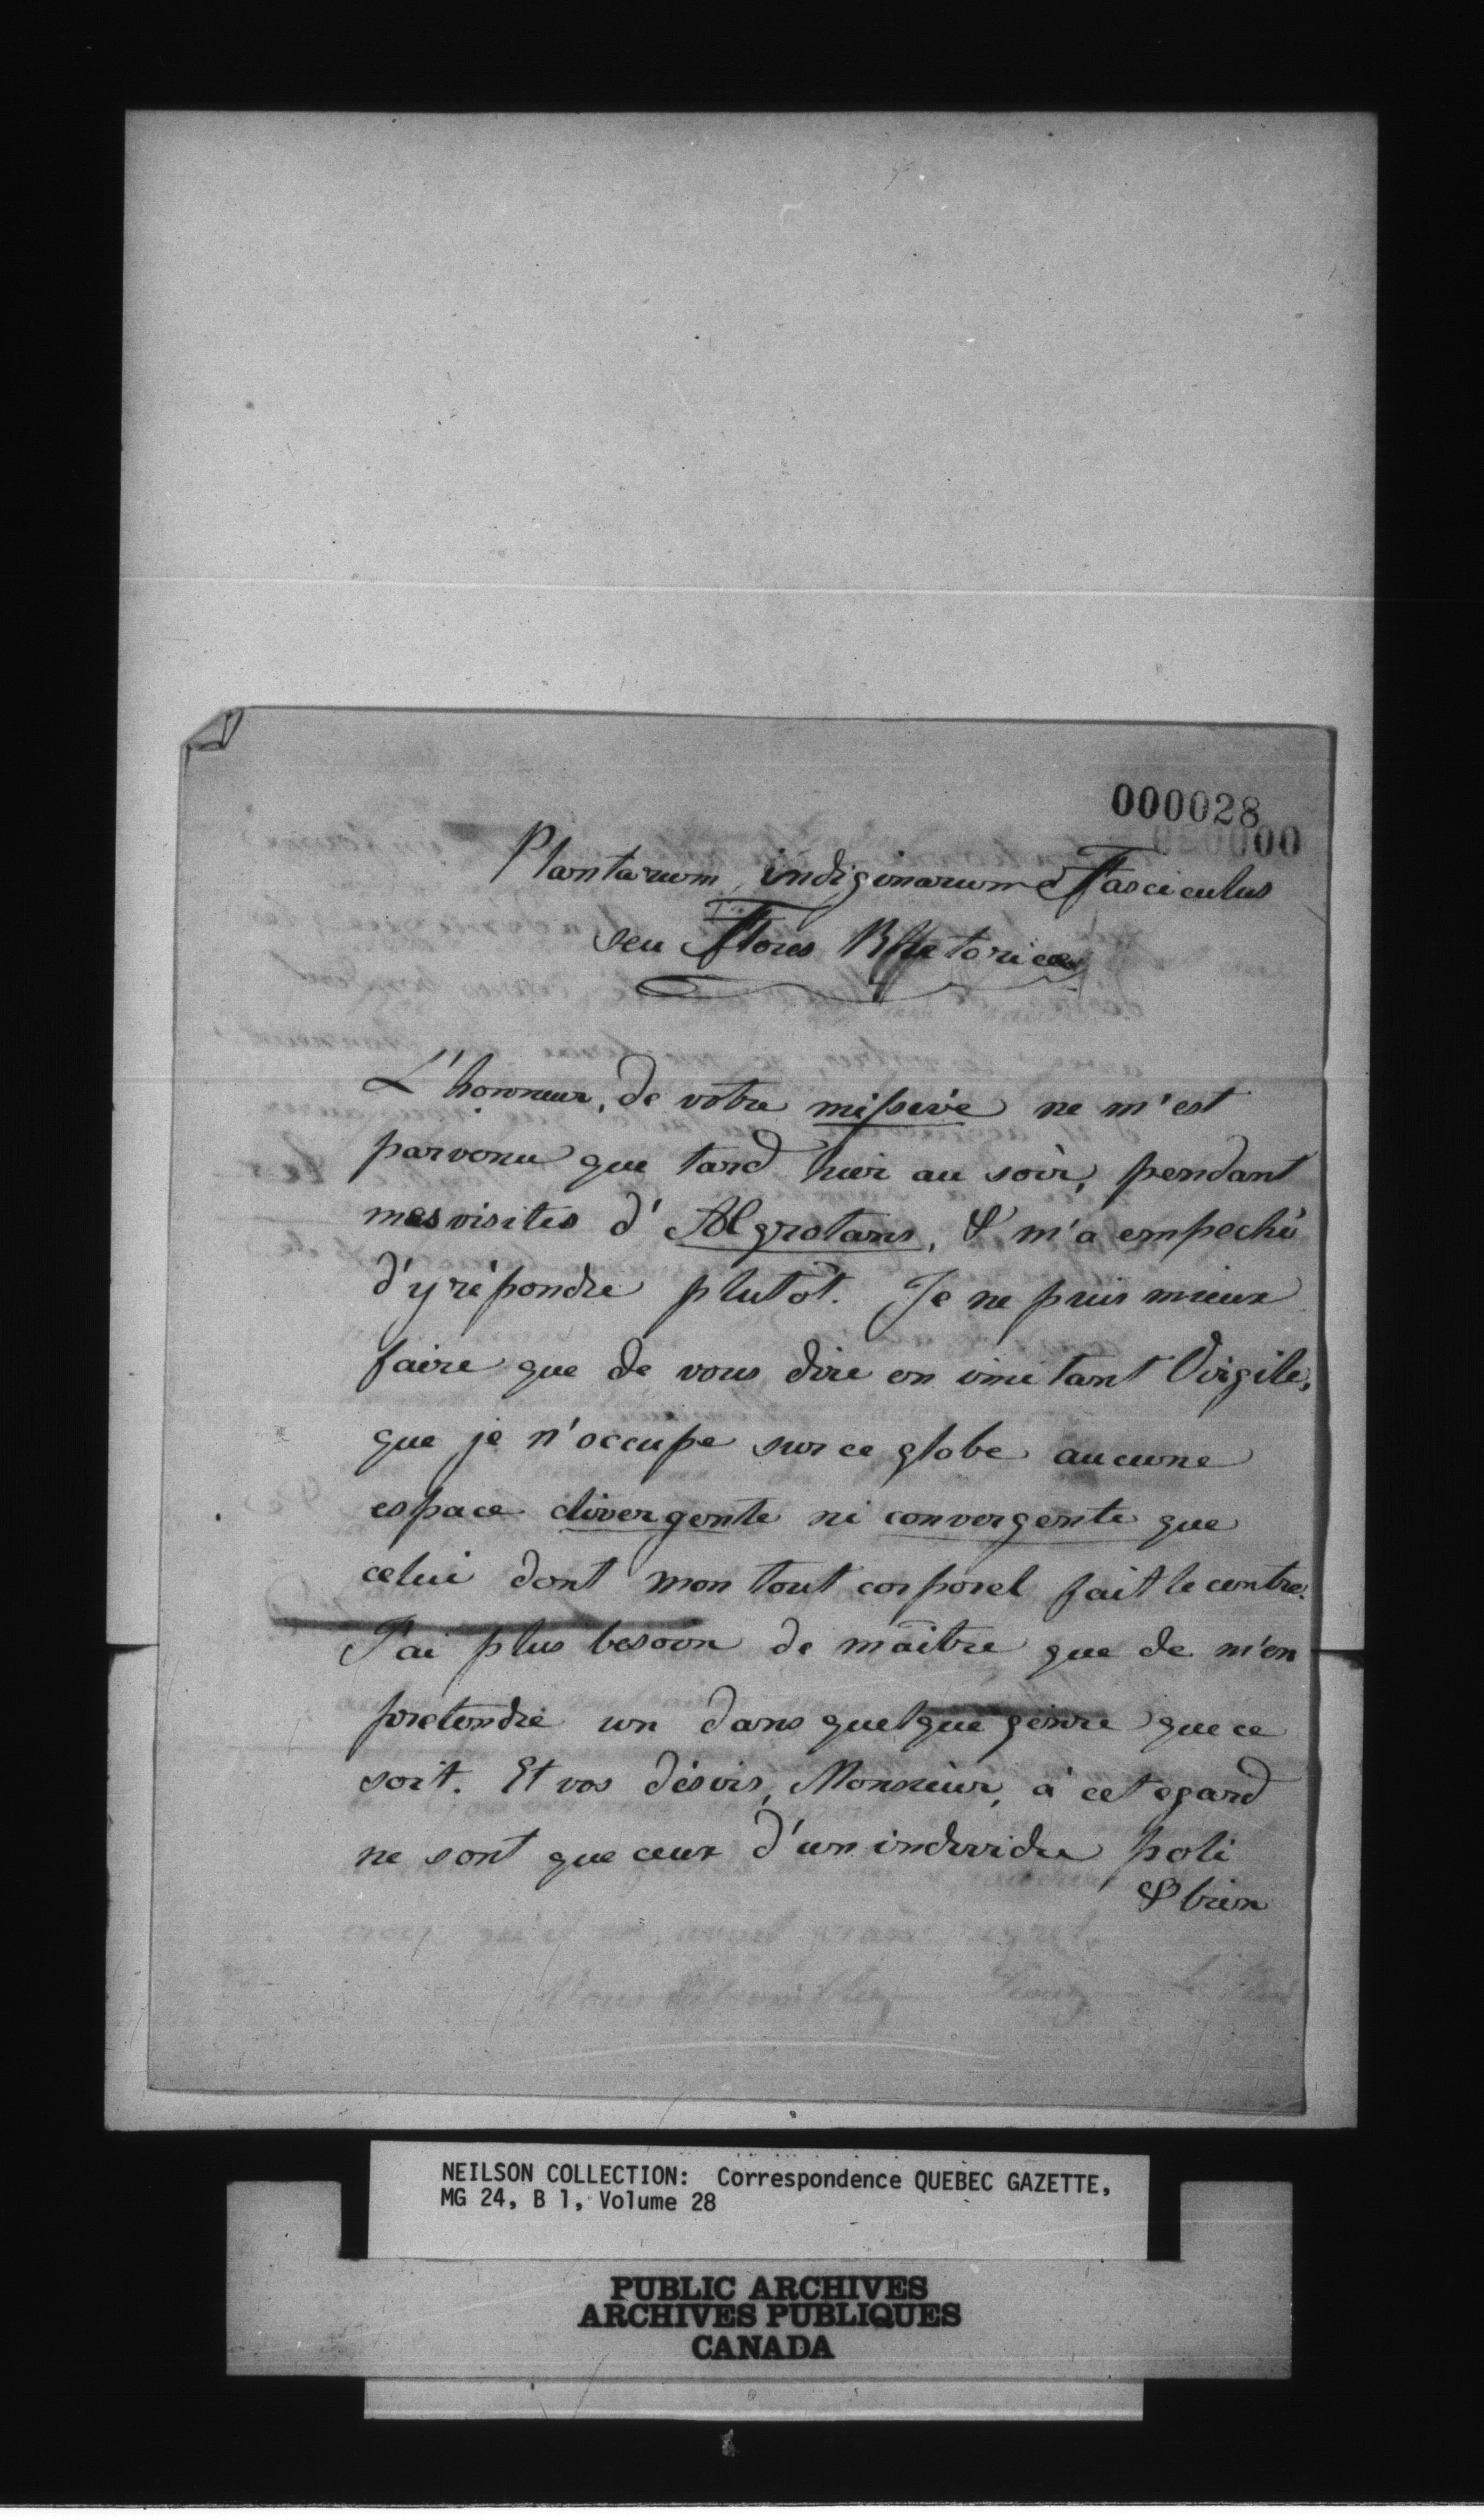 000028
Plantarum indiginarum Fasciculus
seu Flores Rhetoricæ
L'honneur, de votre missive ne m'est
parvenu que tard hier au soir, pendant
mes visites d'Ægrotans, & m'a empeché
d'y répondre plutôt. Je ne puis mieux
faire que de vous dire en imitant Virgile,
que je n'occupe sur ce globe aucune
espace divergente ni convergente que
celui dont mon tout corporel fait le centre.
J'ai plus besoin de maître que de m'en
pretendre un dans quelque genre que ce
soit. Et vos désirs, Monsieur, à cet egard
ne sont que ceux d'un individu poli
& bien
NEILSON COLLECTION: Correspondence QUEBEC GAZETTE,
MG 24, B 1, Volume 28
PUBLIC ARCHIVES
ARCHIVES PUBLIQUES
CANADA